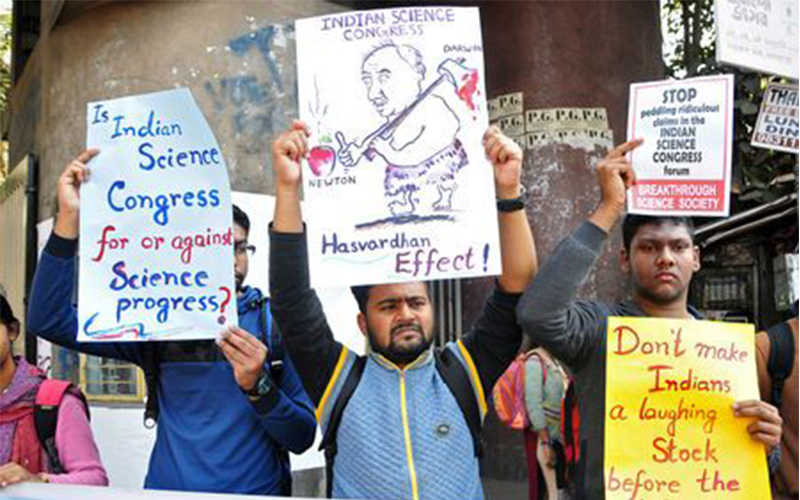 Is
Indian
Science
Congress
for or against
Science
progress?
INDIAN SCIENCE
CONGRESS
DARWIN
NEWTON
Hasvardhan
Effect!
P.G. P.G. P.G. P.G.
STOP
peddling ridiculous
claims in the
INDIAN
SCIENCE
CONGRESS
forum
BREAKTHROUGH
SCIENCE SOCIETY
Don't make
Indians
a laughing
Stock
before the
THAL
LUN
DIN